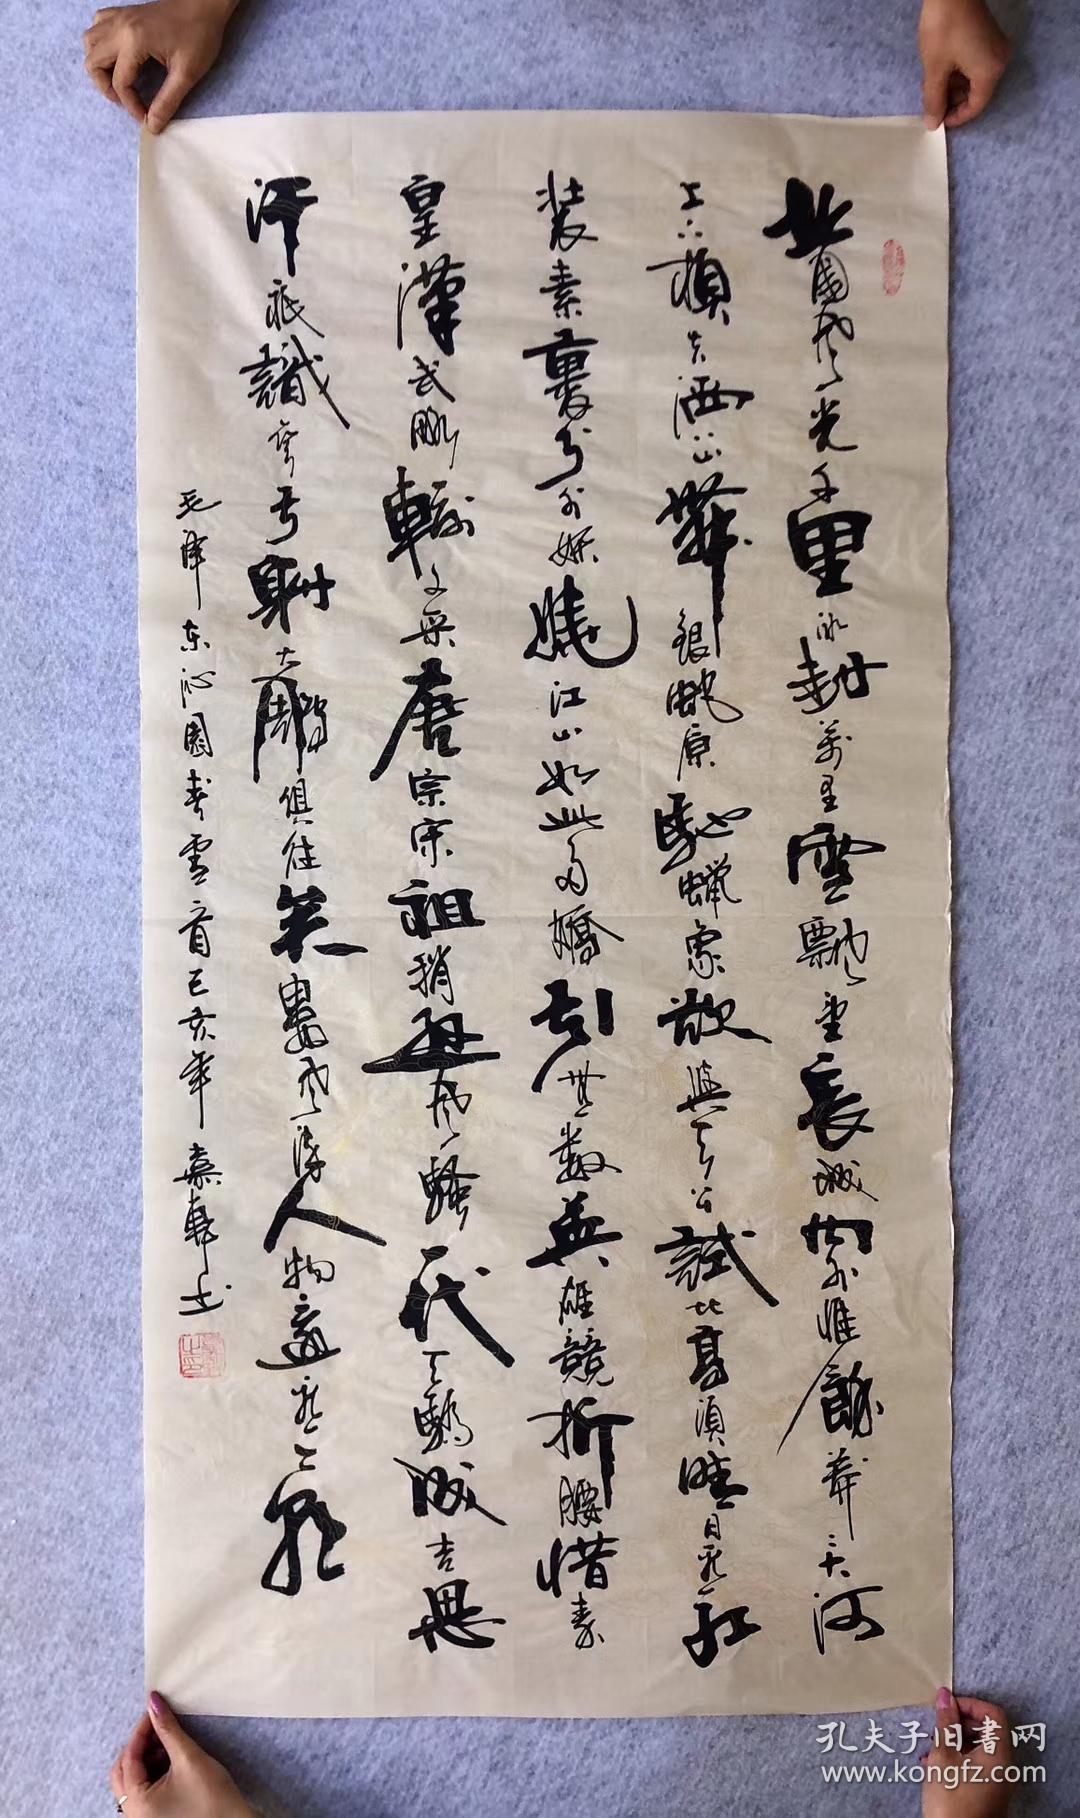 北国风光千里冰封万里雪飘望长城内外惟馀莽莽大河
上下顿失滔滔山舞银蛇原驰蜡象欲与天公试比高须晴日看红
装素裹分外妖娆江山如此多娇引無数英雄競折腰惜秦
皇漢武略輸文采唐宗宋祖稍逊风骚一代天驕成吉思
汗祗識弯弓射大雕俱往矣数风流人物還看今朝
毛泽东沁園春雪一首己亥年嘉轩书
孔夫子旧书网
www.kongfz.com